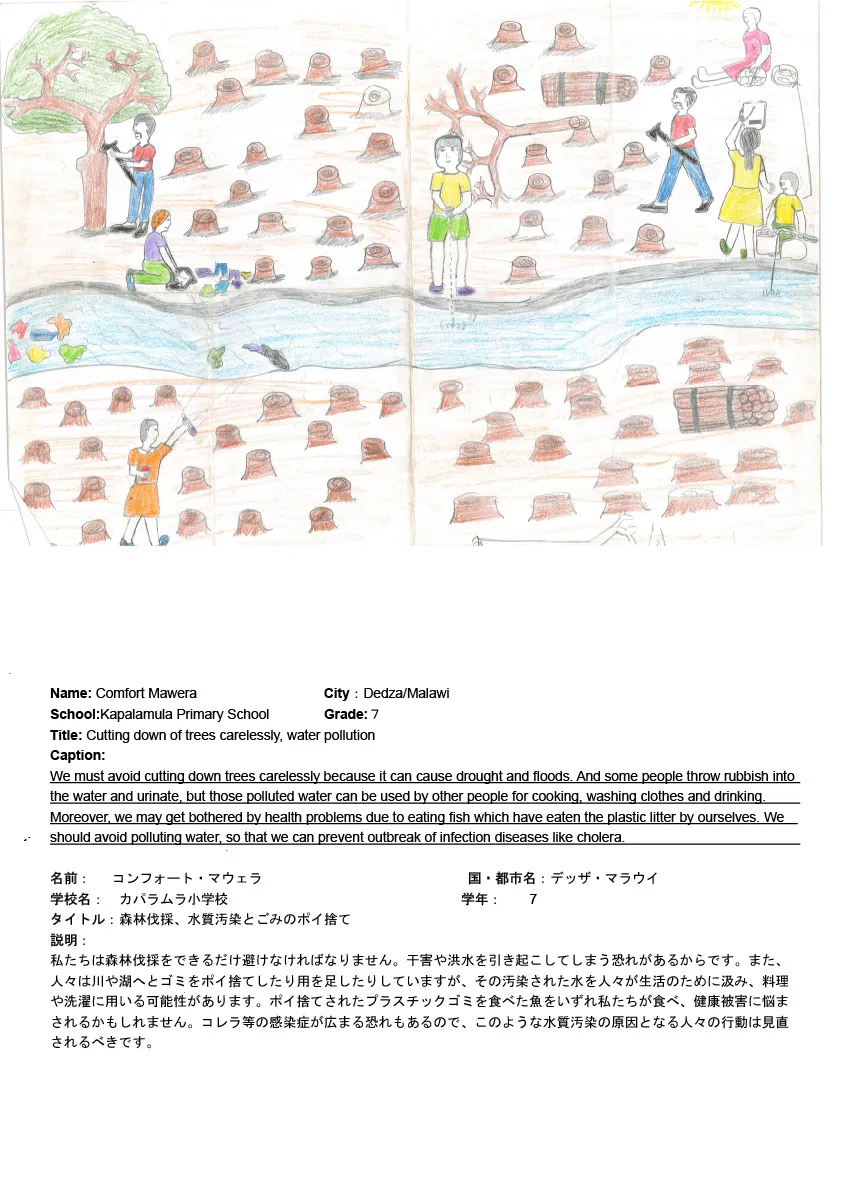 Name: Comfort Mawera City：Dedza/Malawi
School:Kapalamula Primary School Grade: 7
Title: Cutting down of trees carelessly, water pollution
Caption:
We must avoid cutting down trees carelessly because it can cause drought and floods. And some people throw rubbish into
the water and urinate, but those polluted water can be used by other people for cooking, washing clothes and drinking.
Moreover, we may get bothered by health problems due to eating fish which have eaten the plastic litter by ourselves. We
should avoid polluting water, so that we can prevent outbreak of infection diseases like cholera.
名前： コンフォート・マウェラ 国・都市名：デッザ・マラウイ
学校名： カパラムラ小学校 学年： 7
タイトル：森林伐採、水質汚染とごみのポイ捨て
説明：
私たちは森林伐採をできるだけ避けなければなりません。干害や洪水を引き起こしてしまう恐れがあるからです。また、
人々は川や湖へとゴミをポイ捨てしたり用を足したりしていますが、その汚染された水を人々が生活のために汲み、料理
や洗濯に用いる可能性があります。ポイ捨てされたプラスチックゴミを食べた魚をいずれ私たちが食べ、健康被害に悩ま
されるかもしれません。コレラ等の感染症が広まる恐れもあるので、このような水質汚染の原因となる人々の行動は見直
されるべきです。